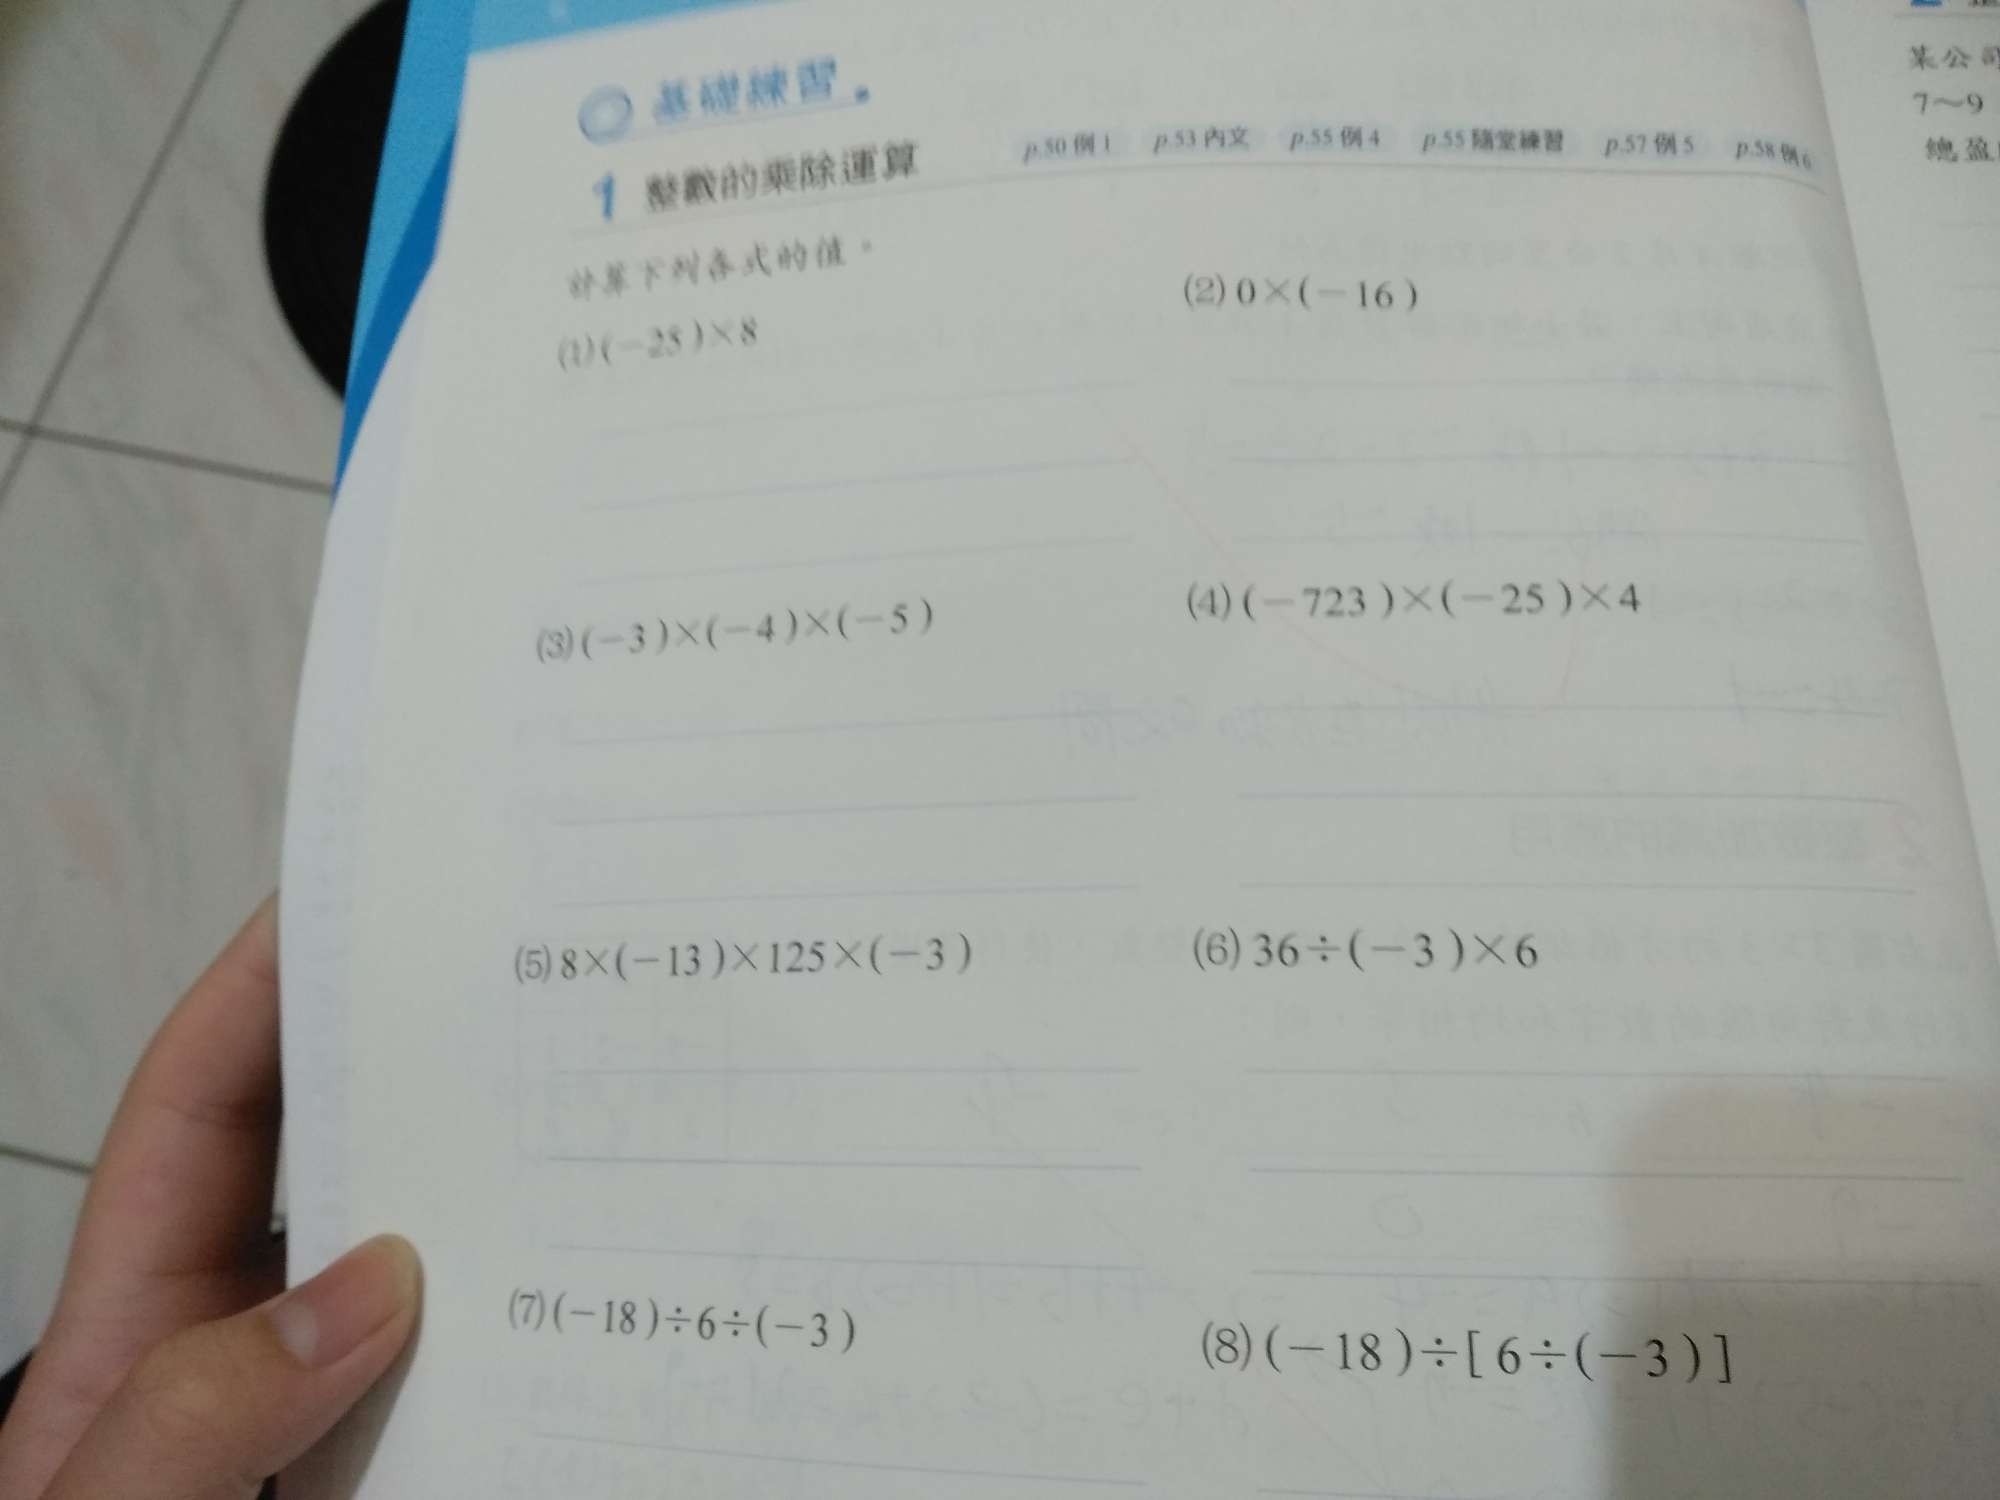 基礎練習
1 整數的乘除運算 p.50 例 1 p.53 內文 p.55 例 4 p.55 隨堂練習 p.57 例 5 p.58 例 6
計算下列各式的值。
(1)(－25)×8
(2) 0×(－16)
(3)(－3)×(－4)×(－5)
(4)(－723)×(－25)×4
(5) 8×(－13)×125×(－3)
(6) 36÷(－3)×6
(7)(－18)÷6÷(－3)
(8)(－18)÷[ 6÷(－3)]
某公司
7～9
總盈